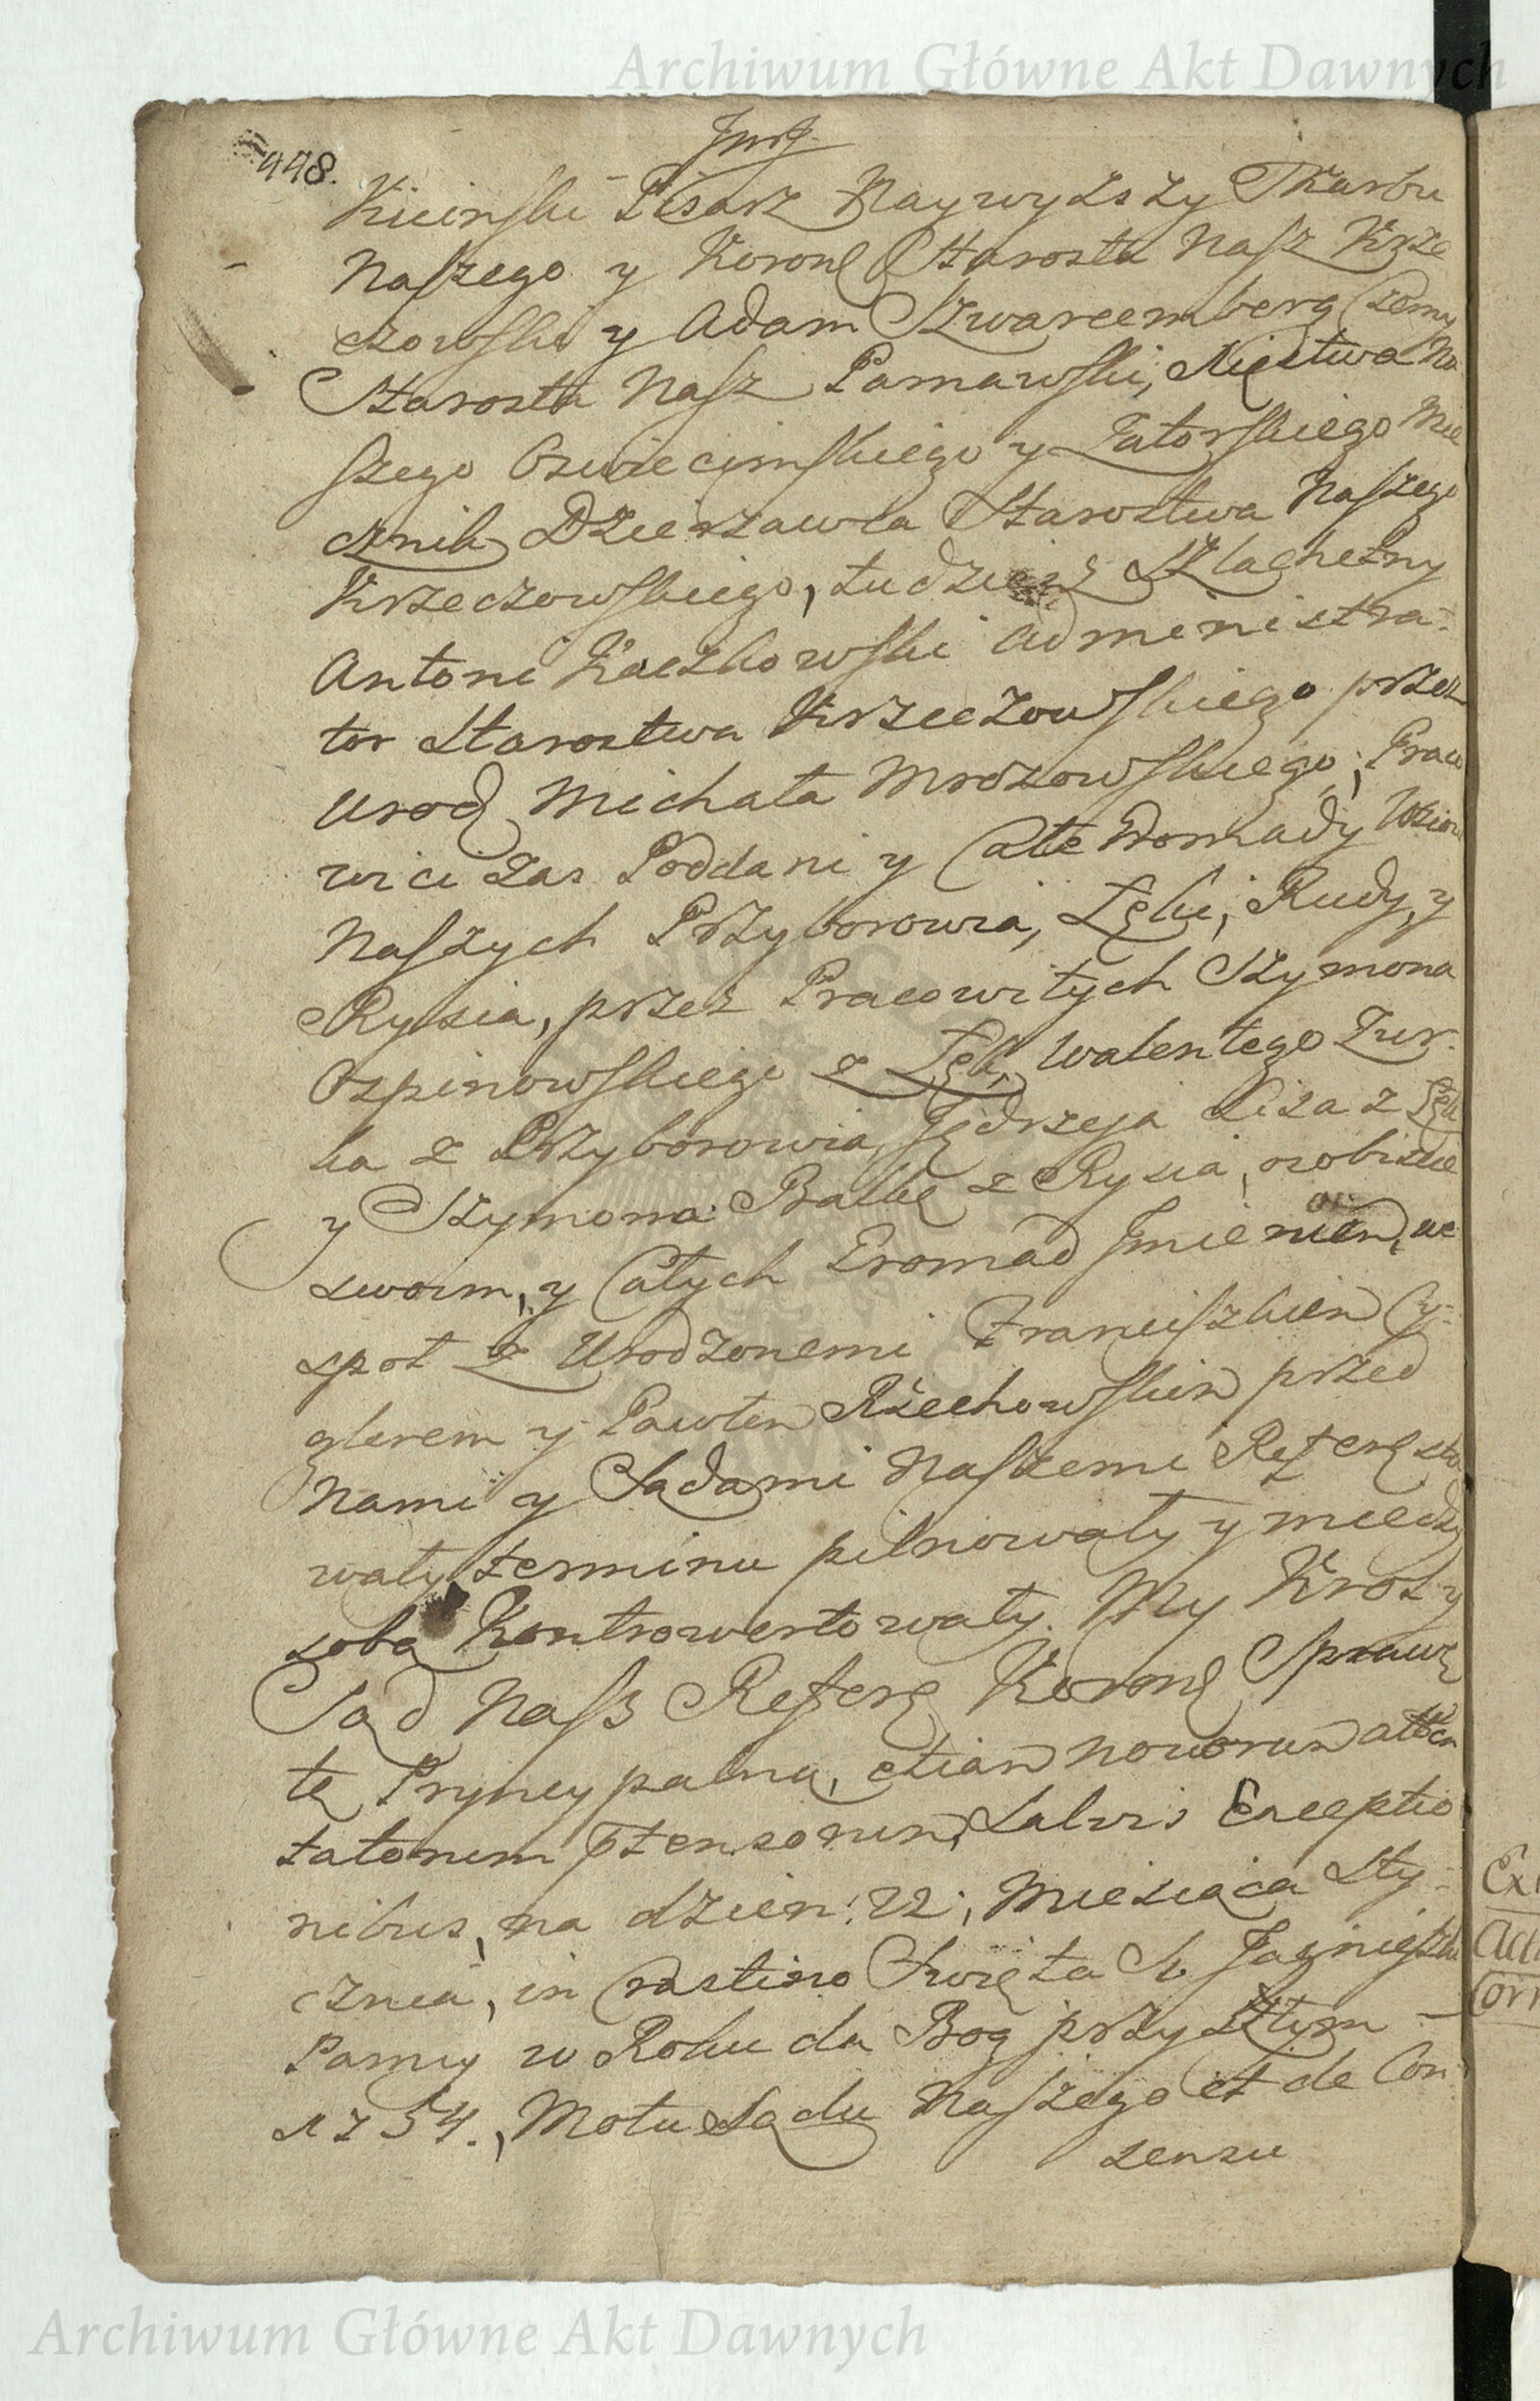 Archiwum Główne Akt Dawnych
448.
Kicinski Pisarz Naywyższy Skarbu
Naszego y Koronę Starosta Nasz Krze
czowski y Adam Szwarcemberg Czerny
Starosta Nasz Parnawski, Xięstwa Na
szego Oswięcimskiego y Zatorskiego Mie
cznik Dzierżawca Starostwa Naszego
Krzeczowskiego, tudziesz Szlachetny
Antoni Kaczkowski Administra-
tor Starostwa Krzeczowskiego przez
Urodz Michała Mrozowskiego; Praco
wici zas Poddani y Całe Gromady Wsiow
Naszych Przyborowia, Łęki, Rudy, y
Rysia, przez Pracowitych Szymona
Ospinowskiego z Łęk, Walentego Żur-
ka z Przyborowia, Jędrzeja Lisa z Łęk
y Szymona Bałę z Rysia, osobiscie
swoim, y Całych Gromad Imieniem, we
społ z Urodzonemi Franciszkiem Cy-
glerem y Pawłem Rżechowskim przed
Nami y Sądami Naszemi Referęsto
wały, terminu pilnowały y miedzy
sobą Kontrowertowały. My Krol y
Sąd Nasz Referę Koronę Sprawę
tę Pryncypalną, etiam novorum atten
tatorum ptensorum, Salvis Exceptio
nibus, na dzien: 22; Miesiąca Sty-
cznia, in Crastino Swięta S. Jagnieszki
Panny w Roku da Bog przyszłym
1754., Motu Sądu Naszego et de Con
sensu
Ex
Act
Corr
Archiwum Główne Akt Dawnych